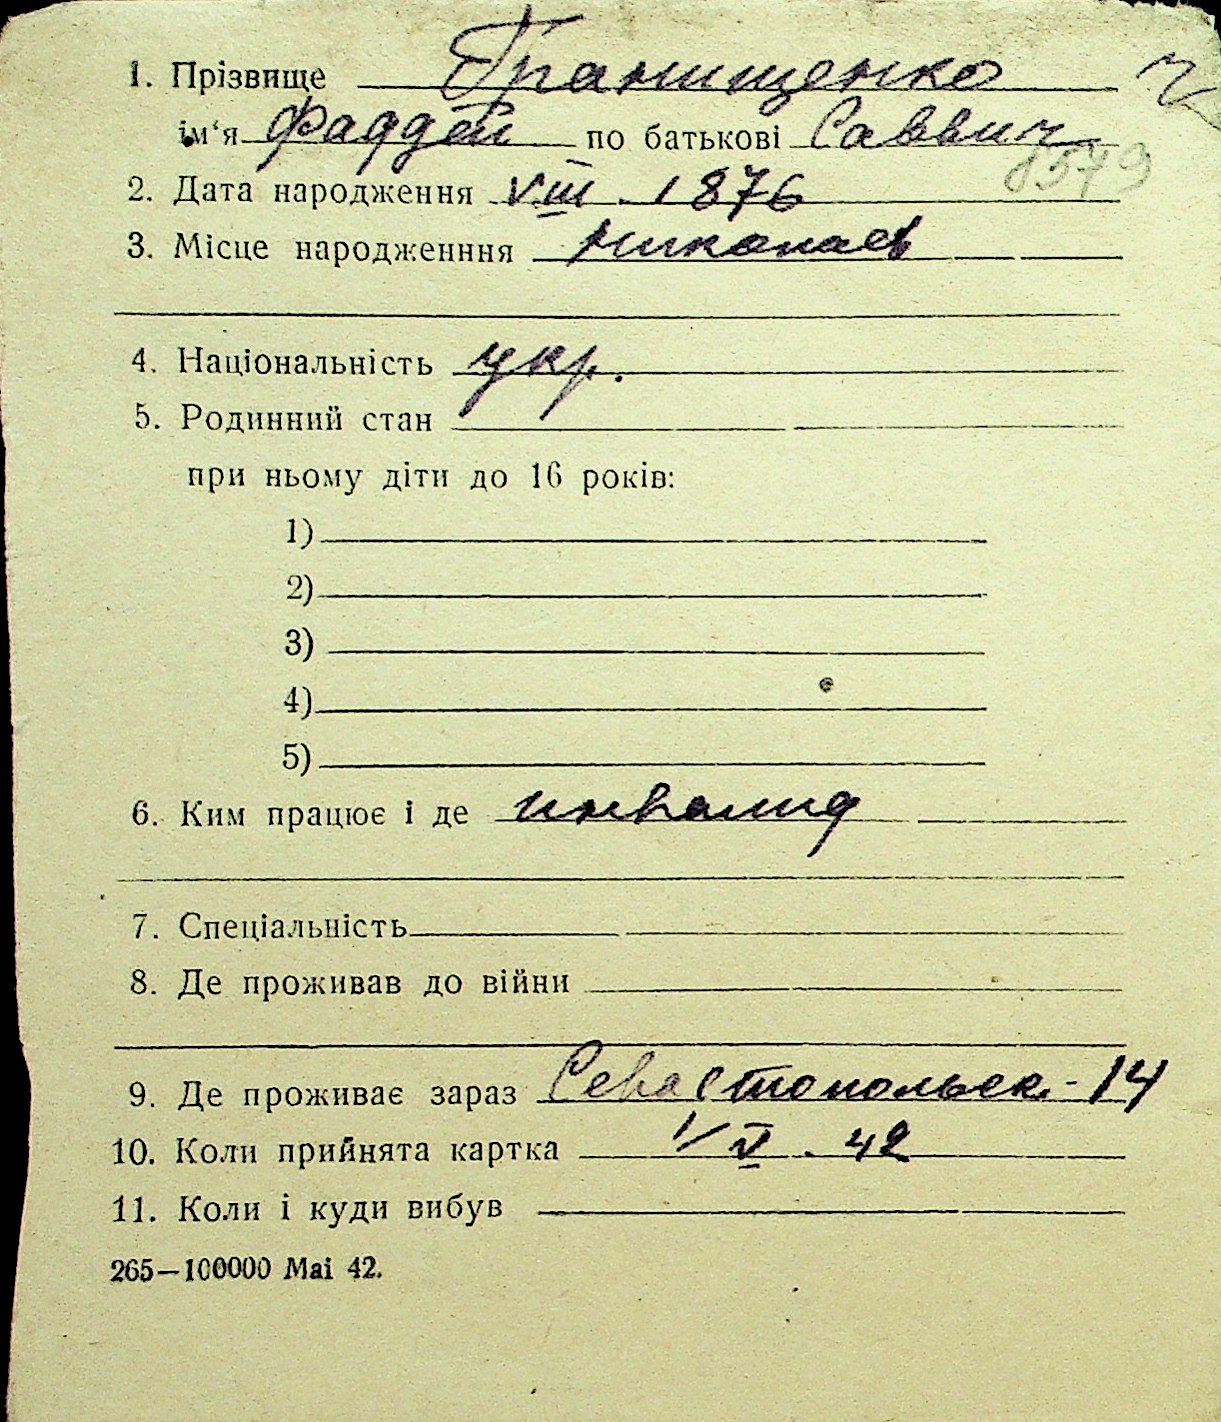 1. Прізвище Гранищенко
ім‘я Фаддей по батькові Саввич
8579
2. Дата народження VIII. 1876
3. Місце народженння Николаев
4. Національність укр.
5. Родинний стан
при ньому діти до 16 років:
1)
2)
3)
4)
5)
6. Ким працює і де инвалид
7. Спеціальність
8. Де проживав до війни
9. Де проживає зараз Севастопольск. - 14
10. Коли прийнята картка 1/V. 42
11. Коли і куди вибув
265—100000 Mai 42.